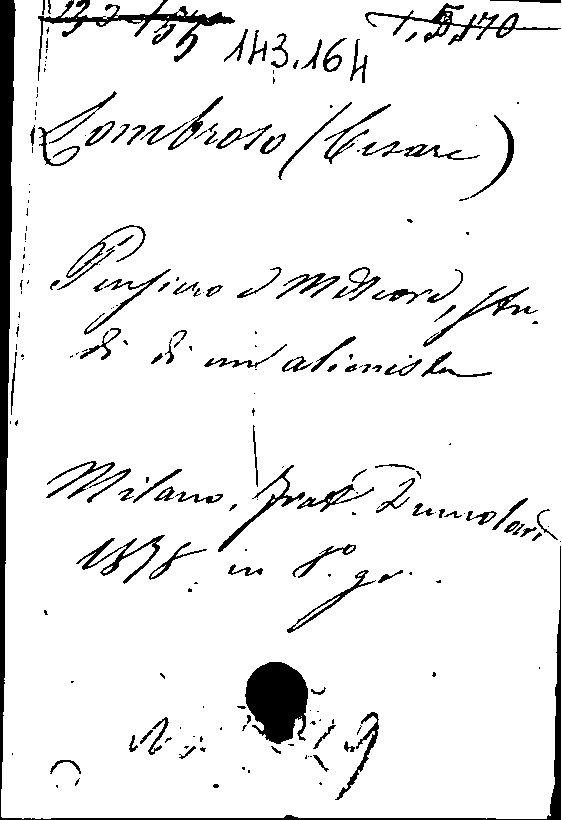 143.164
Lombroso (Cesare)
Pensiero e Meteore, stu-
di di un alienista
Milano, Frat. Dumolard
1878 in 8° gr.